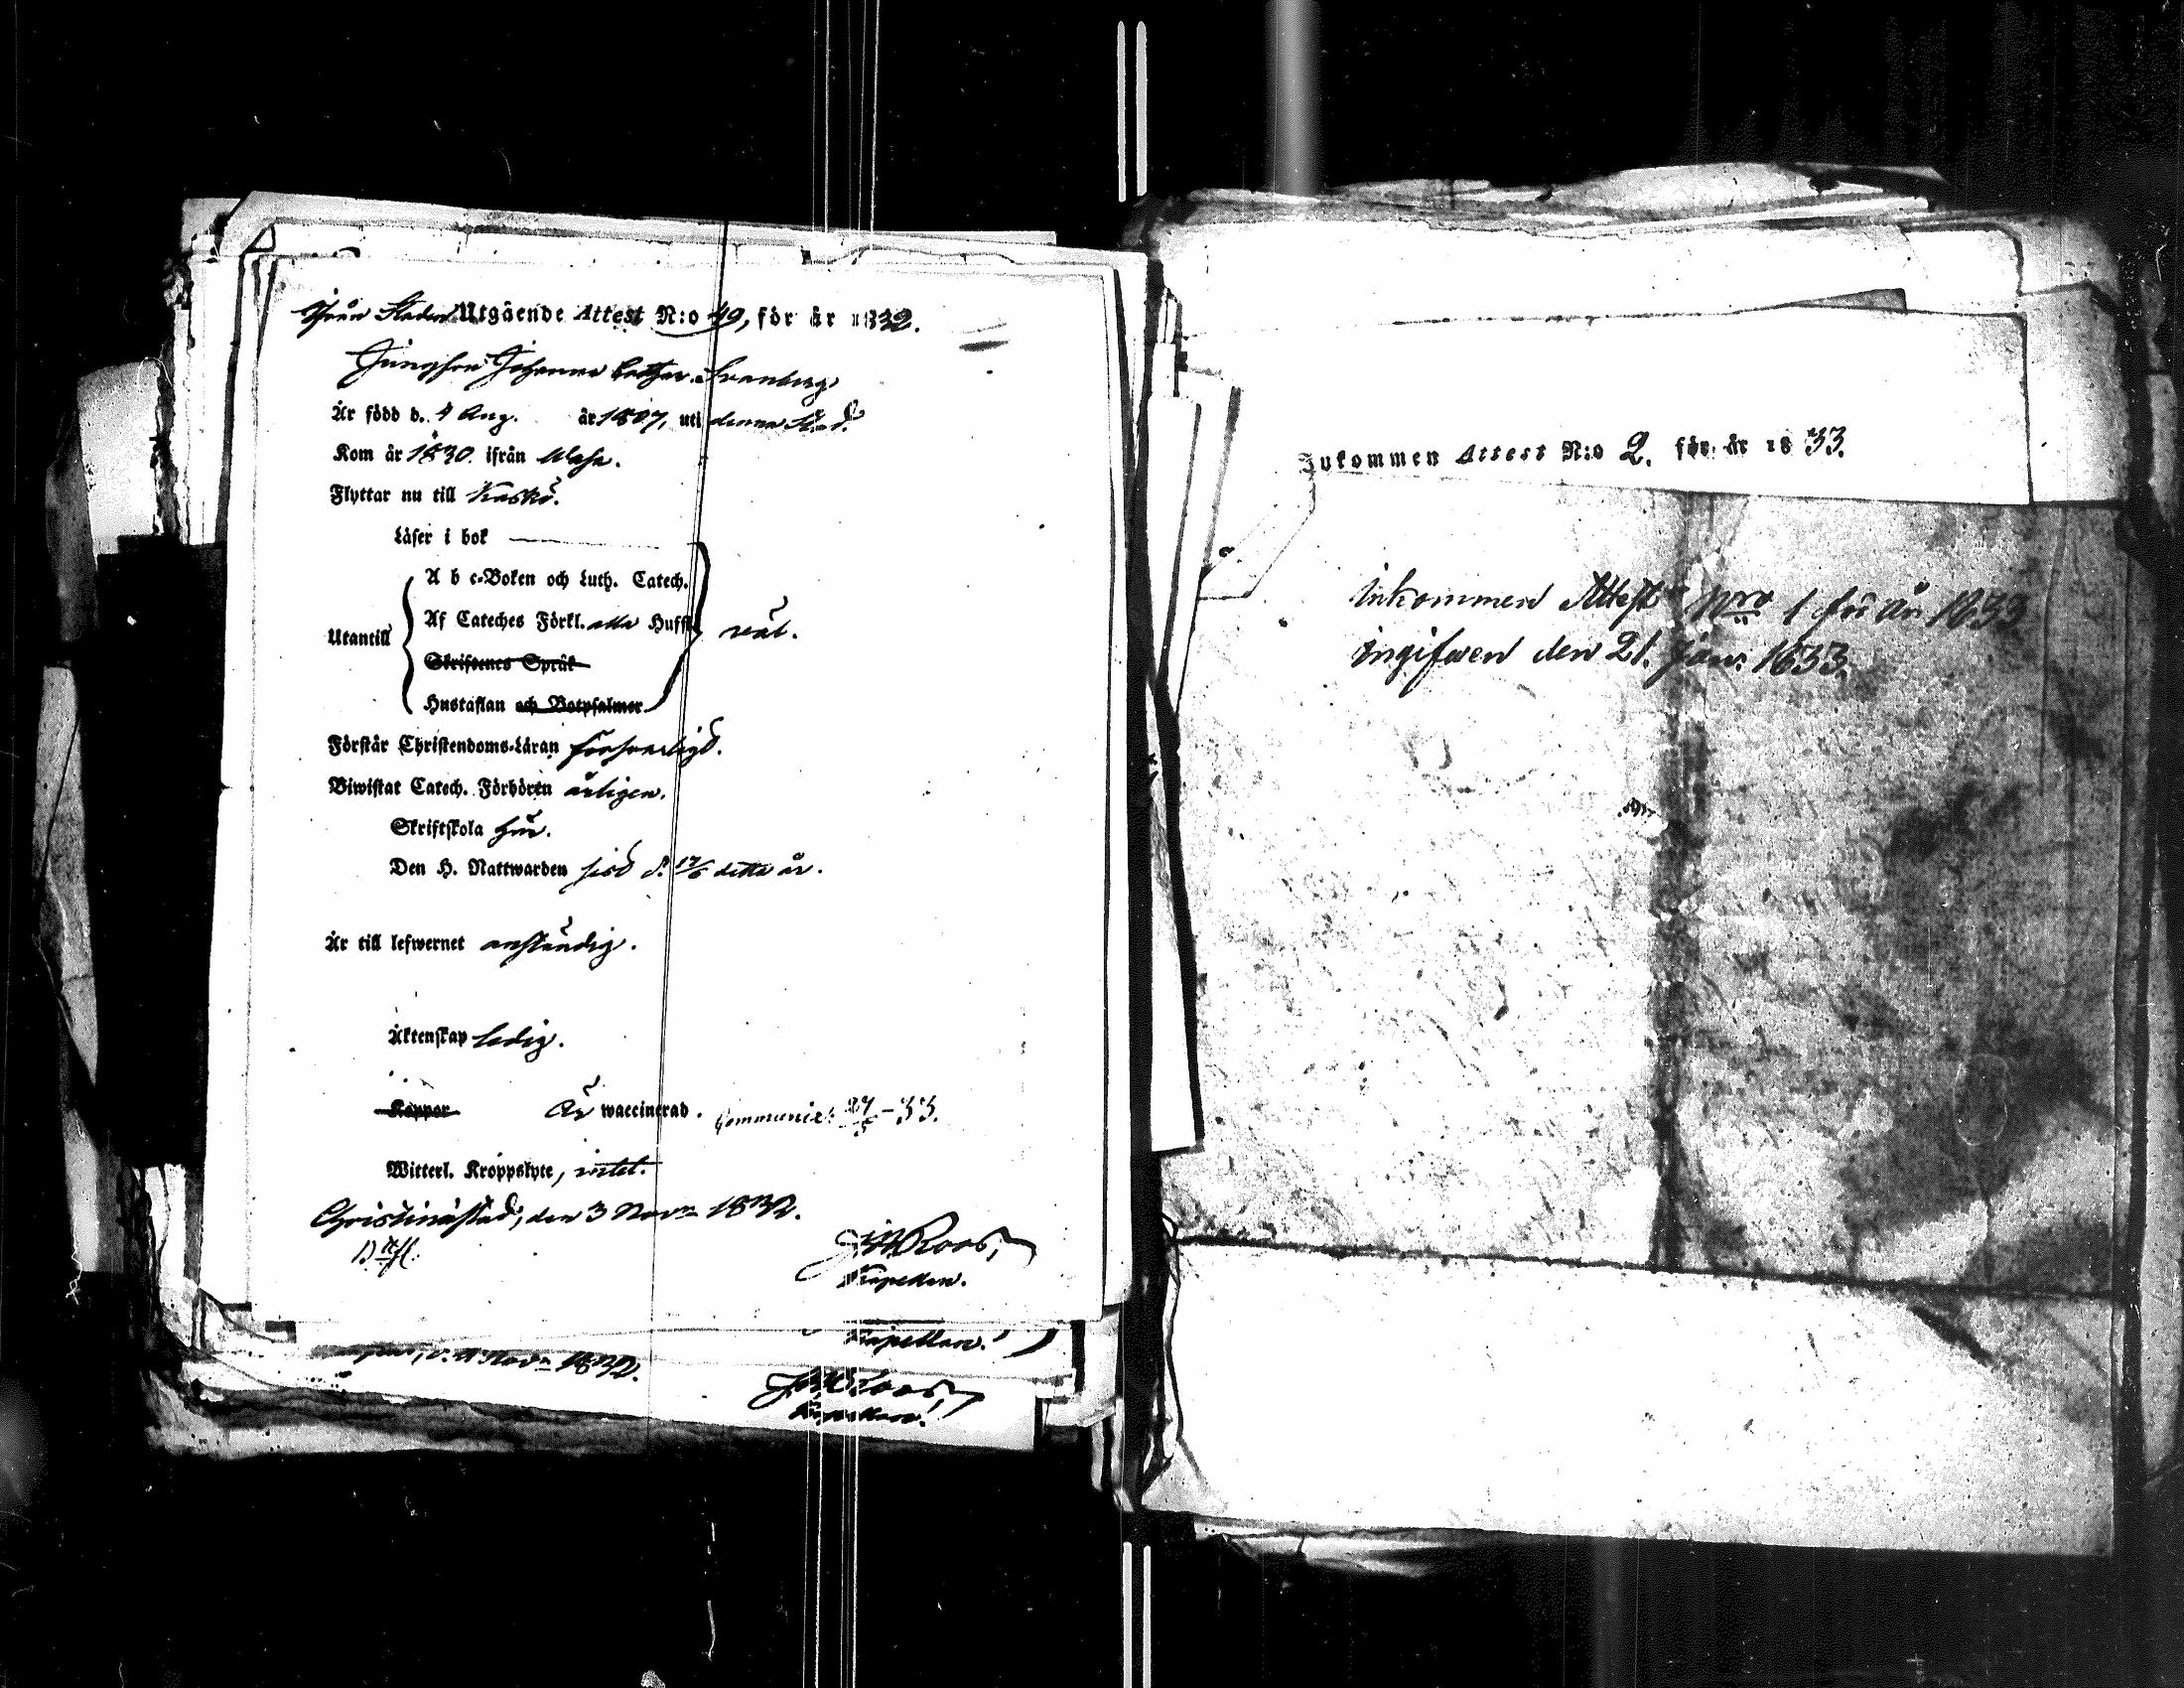 Från Staden Utgående Attest N:o 49, för år 1832.
Jungfru Johanna Cathar. Svanberg
Är född d. 4 Aug. år 1807, uti denna Stad.
Kom år 1830 ifrån Wasa.
Flyttar nu till Kaskö.
Läser i bok
A b c-Boken och Luth. Catech.
Utantill Af Cateches Förkl. alla Hufst. väl.
Skriftenes Språk
Hustaflan och Botpsalmer
Förstår Christendoms-Läran försvarligt.
Biwistat Catech. Förhören årligen.
Skriftskola här.
Den H. Nattwarden sist d. 17/6 detta år.
Är till lefwernet anständig.
Äktenskap ledig.
Koppor Är waccinerad. Communic: 27/5 - 33.
Witterl. Kroppslyte, intet.
Christinæstad, den 3 Nov. 1832.
Roos,
Kapellan.
Kapellan.
Nov. 1832.
Roos,
Kapellan.
Inkommen Attest N:o 2. för år 1833.
Inkommen Attest Nro 1 för år 1833
ingifven den 21. Jan: 1833.